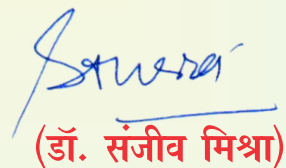 (डॉ. संजीव मिश्रा)